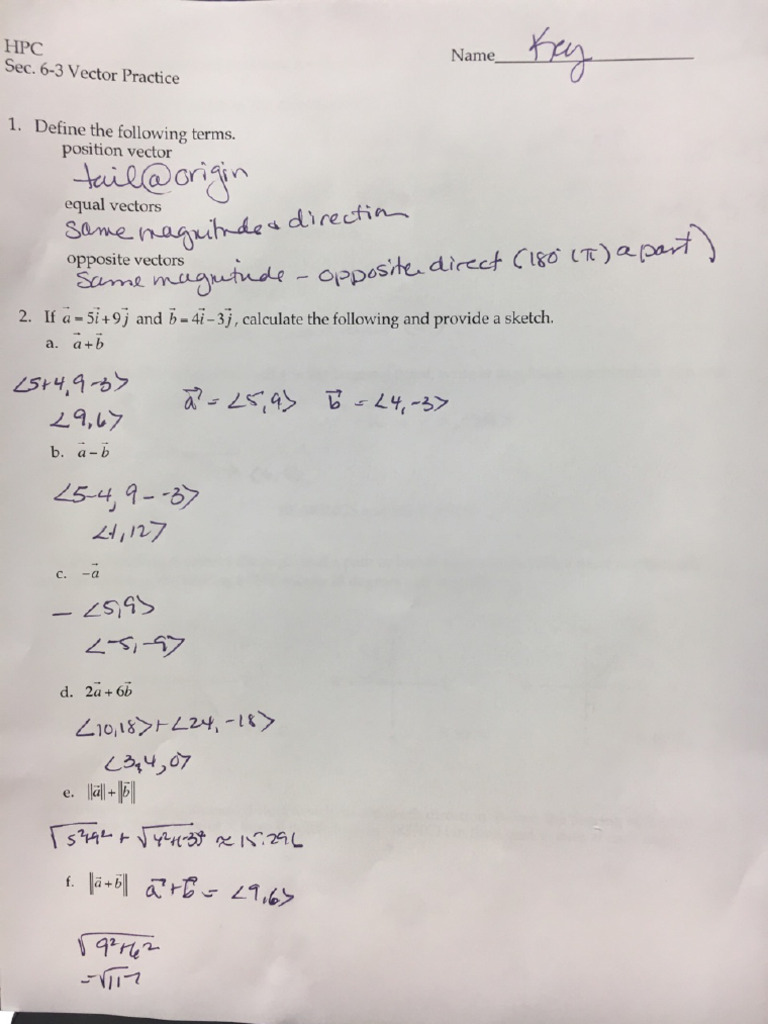 HPC
Name Key
Sec. 6-3 Vector Practice
1. Define the following terms.
position vector
tail@origin
equal vectors
same magnitude & direction
opposite vectors
same magnitude - opposite direct (180° (π) apart)
2. If a⃗ = 5i⃗ + 9j⃗ and b⃗ = 4i⃗ − 3j⃗, calculate the following and provide a sketch.
a. a⃗ + b⃗
<5+4, 9-3>
a⃗ = <5,9> b⃗ = <4,-3>
<9,6>
b. a⃗ − b⃗
<5-4, 9--3>
<1,12>
c. −a⃗
- <5,9>
<-5,-9>
d. 2a⃗ + 6b⃗
<10,18>+<24,-18>
<34,0>
e. ‖a⃗‖ + ‖b⃗‖
√5²+9² + √4²+(-3)² ≈ 15.296
f. ‖a⃗ + b⃗‖ a⃗+b⃗ = <9,6>
√9²+6²
=√117